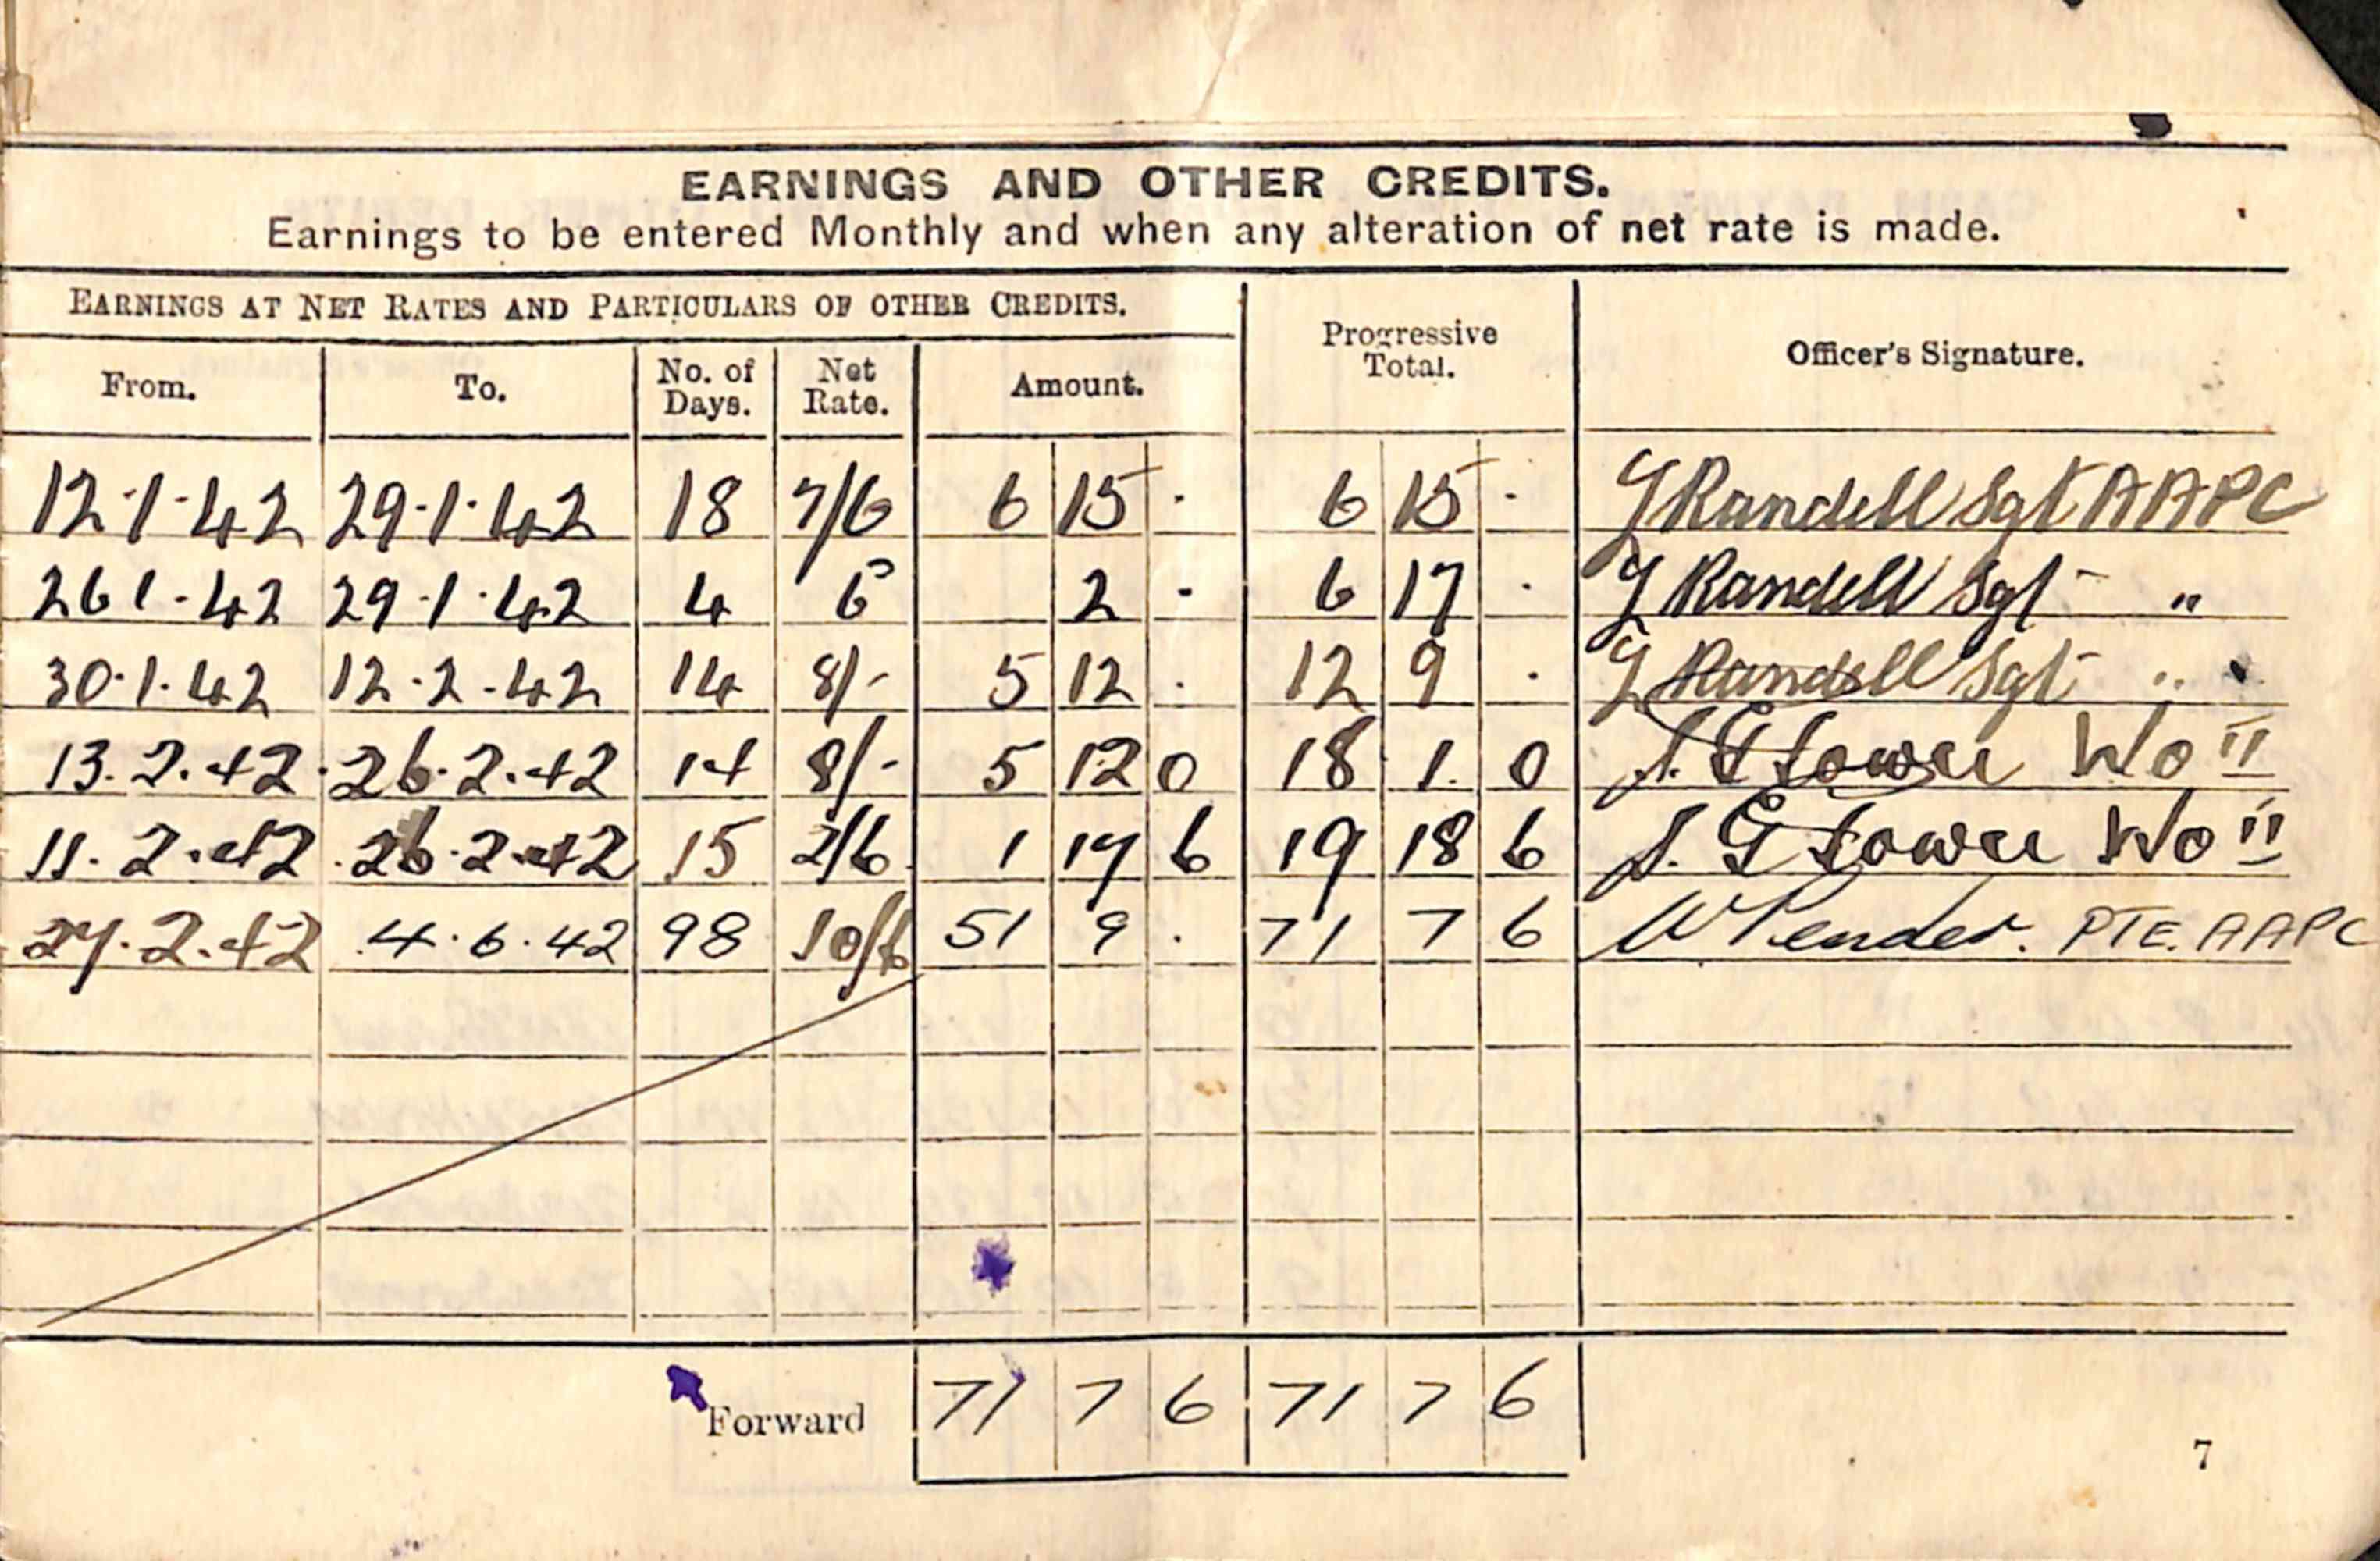 EARNINGS AND OTHER CREDITS.
Earnings to be entered Monthly and when any alteration of net rate is made.
EARNINGS AT NET RATES AND PARTICULARS OF OTHER CREDITS. Progressive Total. Officer's Signature.
From. To. No. of Days. Net Rate. Amount.
12·1·42 29·1·42 18 7/6 6 15 · 6 15 · G Randell Sgt AAPC
26 1·42 29·1·42 4 6 2 · 6 17 · G Randell Sgt "
30·1·42 12·2·42 14 8/- 5 12 · 12 9 · G Randell Sgt "
13.2.42 26.2.42 14 8/- 5 12 0 18 1. 0 Wo II
11.2.42 26.2.42 15 2/6 1 17 6 19 18 6 Wo II
27.2.42 4·6·42 98 10/6 51 9 · 71 7 6 W Pender. PTE. AAPC
Forward 71 7 6 71 7 6
7